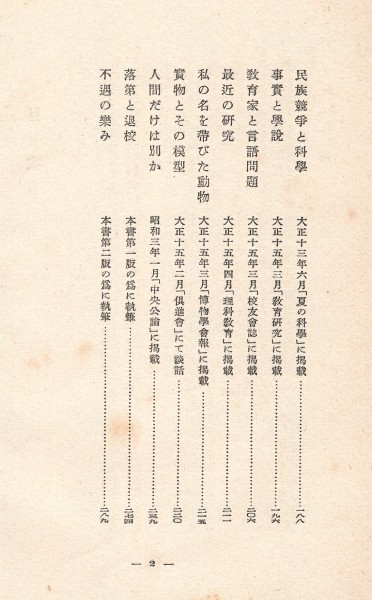 民族競爭と科學 大正十三年六月「夏の科學」に掲載……一八八
事實と學說 大正十五年三月「敎育研究」に掲載……一九六
敎育家と言語問題 大正十五年三月「校友會誌」に掲載……二〇六
最近の研究 大正十五年四月「理科敎育」に掲載……二一一
私の名を帶びた動物 大正十五年三月「博物學會報」に掲載……二一五
實物とその模型 大正十五年二月「倶進會」にて談話……二二〇
人間だけは別か 昭和三年一月「中央公論」に掲載……二三九
落第と退校 本書第一版の爲に執筆……二七四
不遇の樂み 本書第二版の爲に執筆……二八九
— 2 —